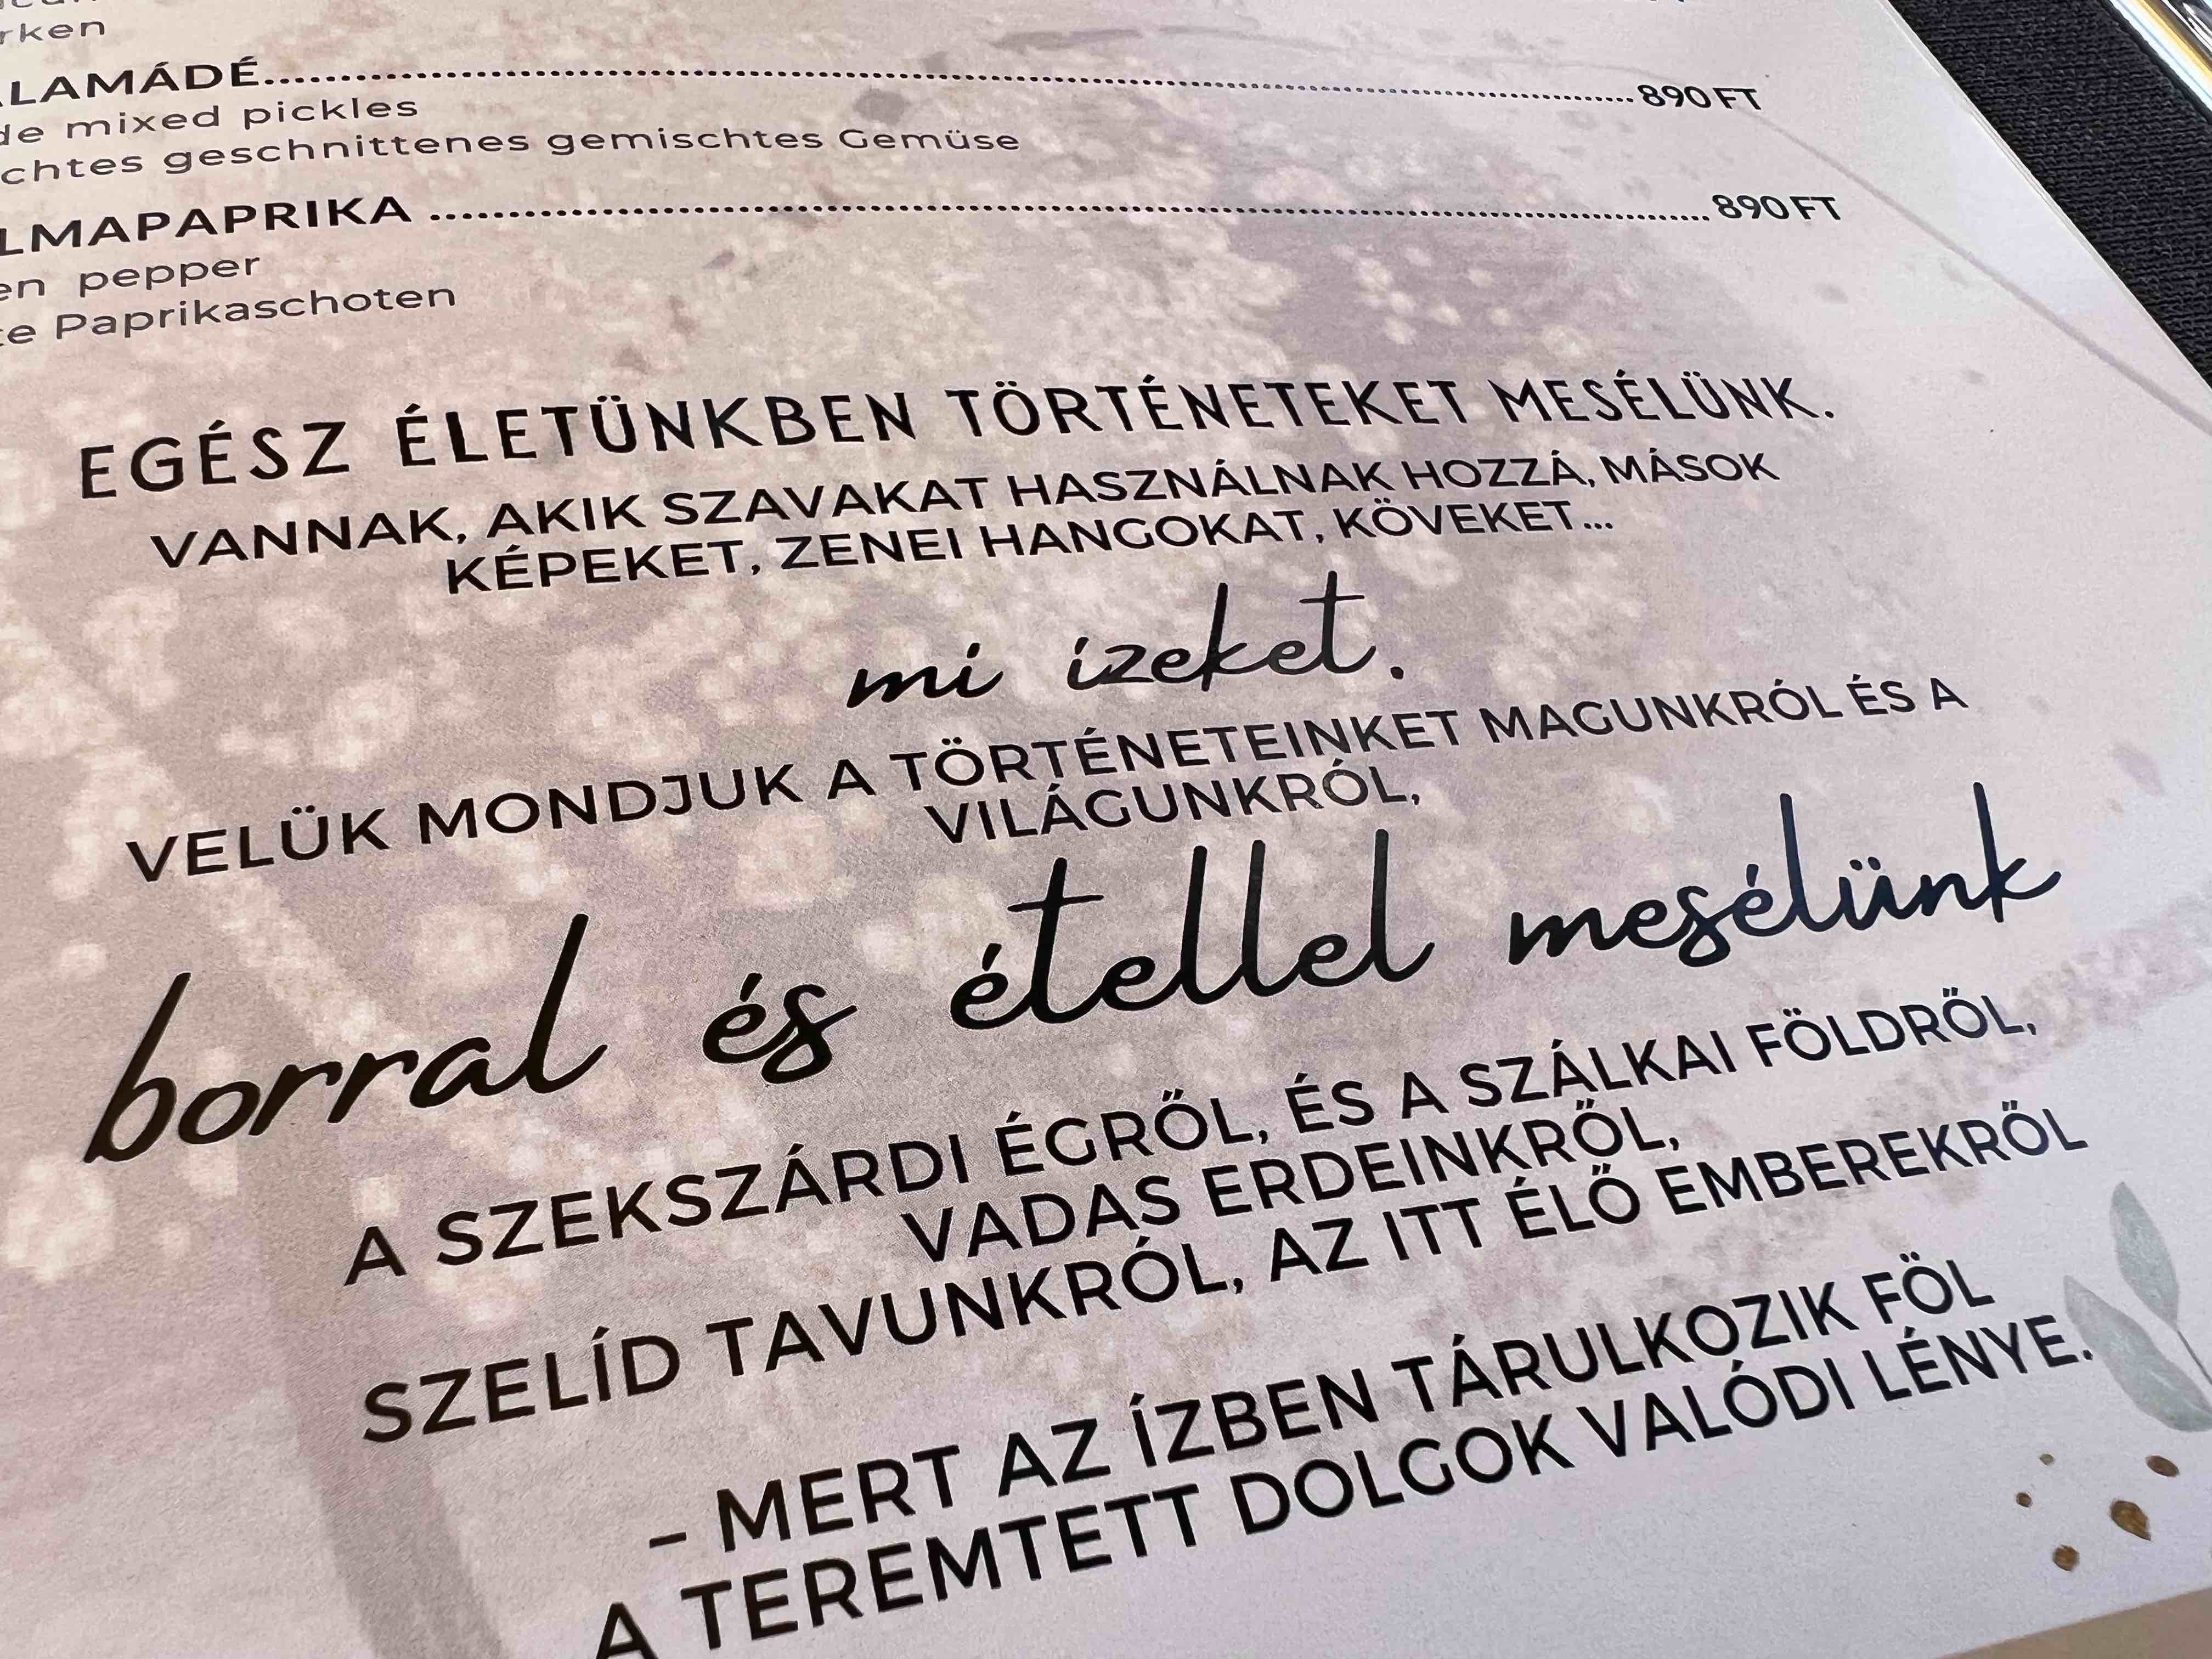 rken
LAMÁDÉ........................890 FT
de mixed pickles
chtes geschnittenes gemischtes Gemüse
LMAPAPRIKA ........................890 FT
en pepper
te Paprikaschoten
EGÉSZ ÉLETÜNKBEN TÖRTÉNETEKET MESÉLÜNK.
VANNAK, AKIK SZAVAKAT HASZNÁLNAK HOZZÁ, MÁSOK
KÉPEKET, ZENEI HANGOKAT, KÖVEKET...
mi ízeket.
VELÜK MONDJUK A TÖRTÉNETEINKET MAGUNKRÓL ÉS A
VILÁGUNKRÓL,
borral és étellel mesélünk
A SZEKSZÁRDI ÉGRŐL, ÉS A SZÁLKAI FÖLDRŐL,
VADAS ERDEINKRŐL,
SZELÍD TAVUNKRÓL, AZ ITT ÉLŐ EMBEREKRŐL
– MERT AZ ÍZBEN TÁRULKOZIK FÖL
A TEREMTETT DOLGOK VALÓDI LÉNYE.